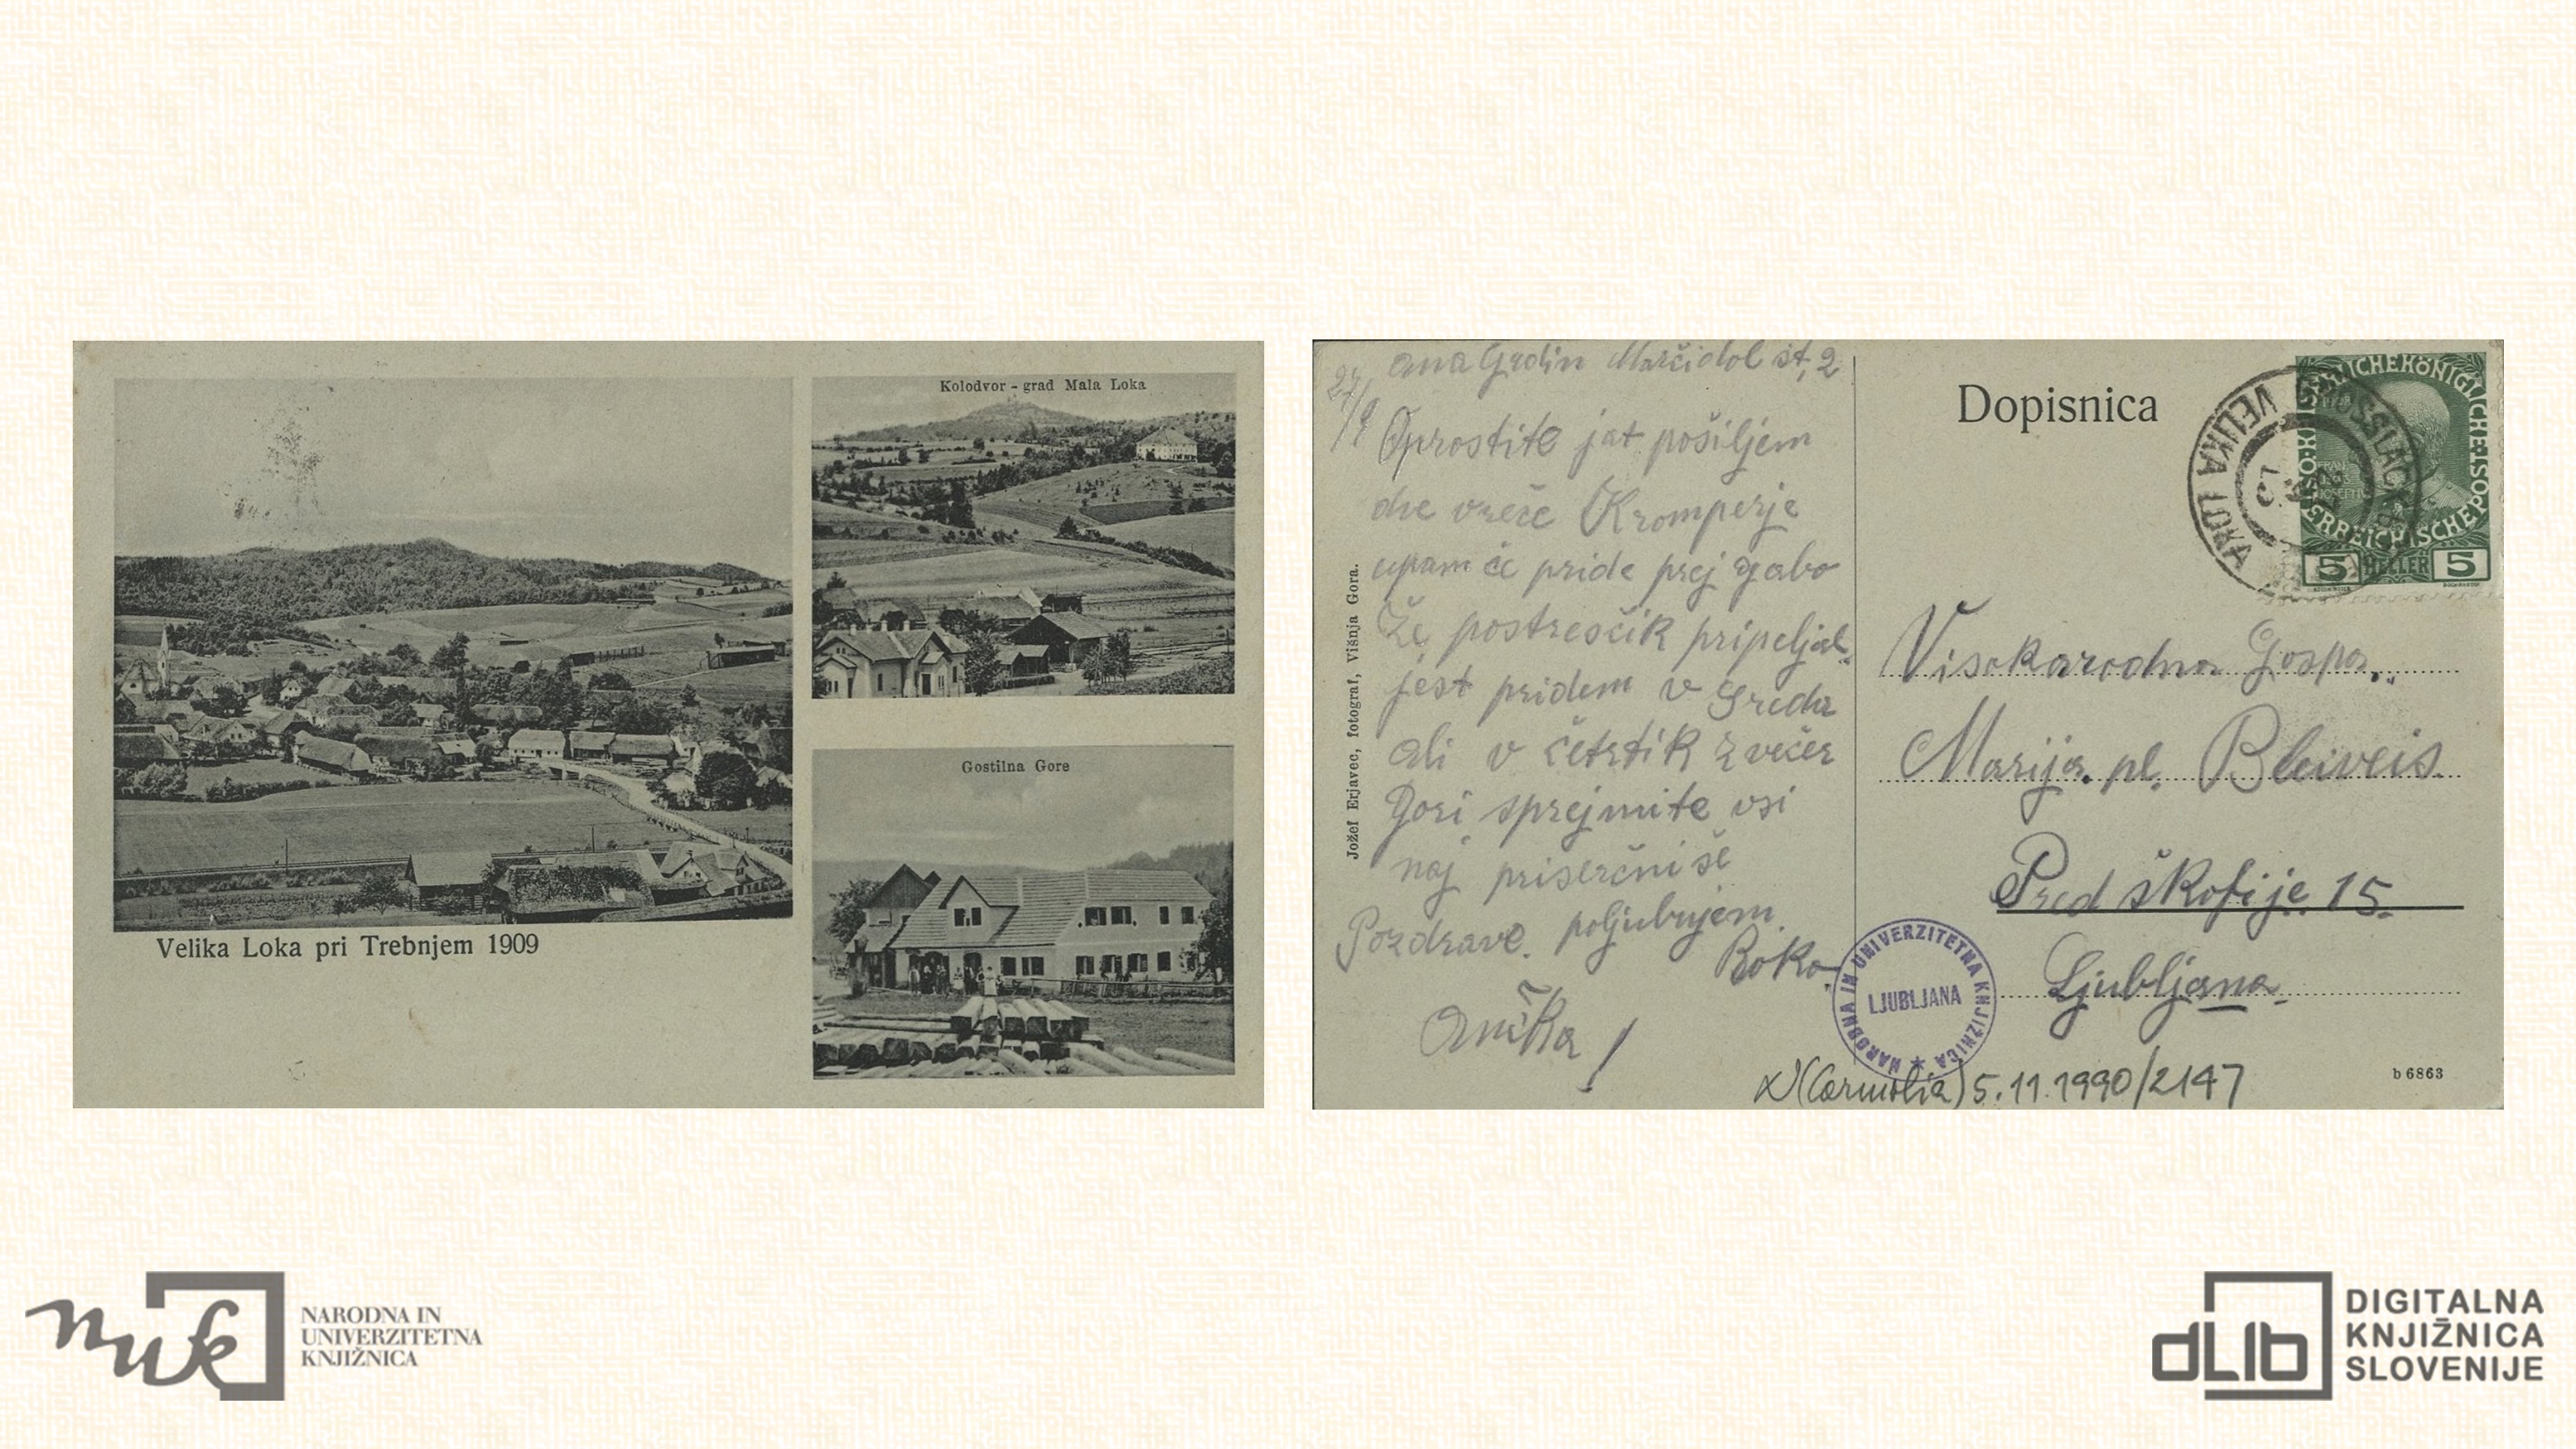 Kolodvor - grad Mala Loka
Gostilna Gore
Velika Loka pri Trebnjem 1909
Ana Grdin Marčidol št, 2
27/9
Oprostite jat pošiljem
dve vreče Kromperje
upam če pride prej gabo
Že postresčik pripeljal.
jest pridem v Greda
ali v četrtik zvečer
Gori sprejmite vsi
naj priserčniše
Pozdrave. poljubujem
Roko.
Ančka!
Jožef Erjavec, fotograf, Višnja Gora.
Dopisnica
VELIKA LOKA
5 HELLER 5
Visokorodna Gospa
Marija. pl. Bleiveis
Pred škofije 15.
Ljubljana.
NARODNA IN UNIVERZITETNA KNJIŽNICA
LJUBLJANA
(Carniolia) 5.11.1990/2147
b 6863
nuk
NARODNA IN
UNIVERZITETNA
KNJIŽNICA
dLib
DIGITALNA
KNJIŽNICA
SLOVENIJE